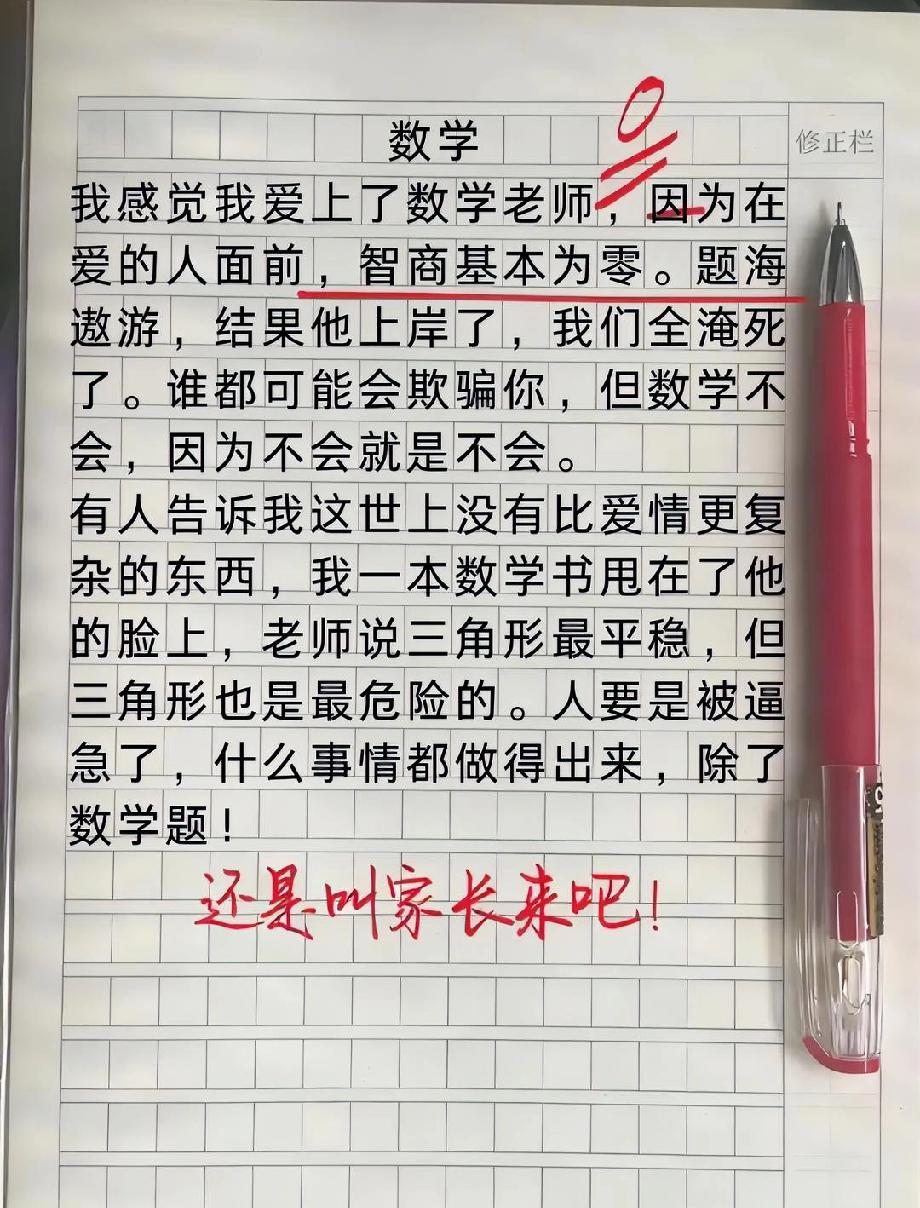 0
数学
修正栏
我感觉我爱上了数学老师，因为在
爱的人面前，智商基本为零。题海
遨游，结果他上岸了，我们全淹死
了。谁都可能会欺骗你，但数学不
会，因为不会就是不会。
有人告诉我这世上没有比爱情更复
杂的东西，我一本数学书甩在了他
的脸上，老师说三角形最平稳，但
三角形也是最危险的。人要是被逼
急了，什么事情都做得出来，除了
数学题！
还是叫家长来吧！